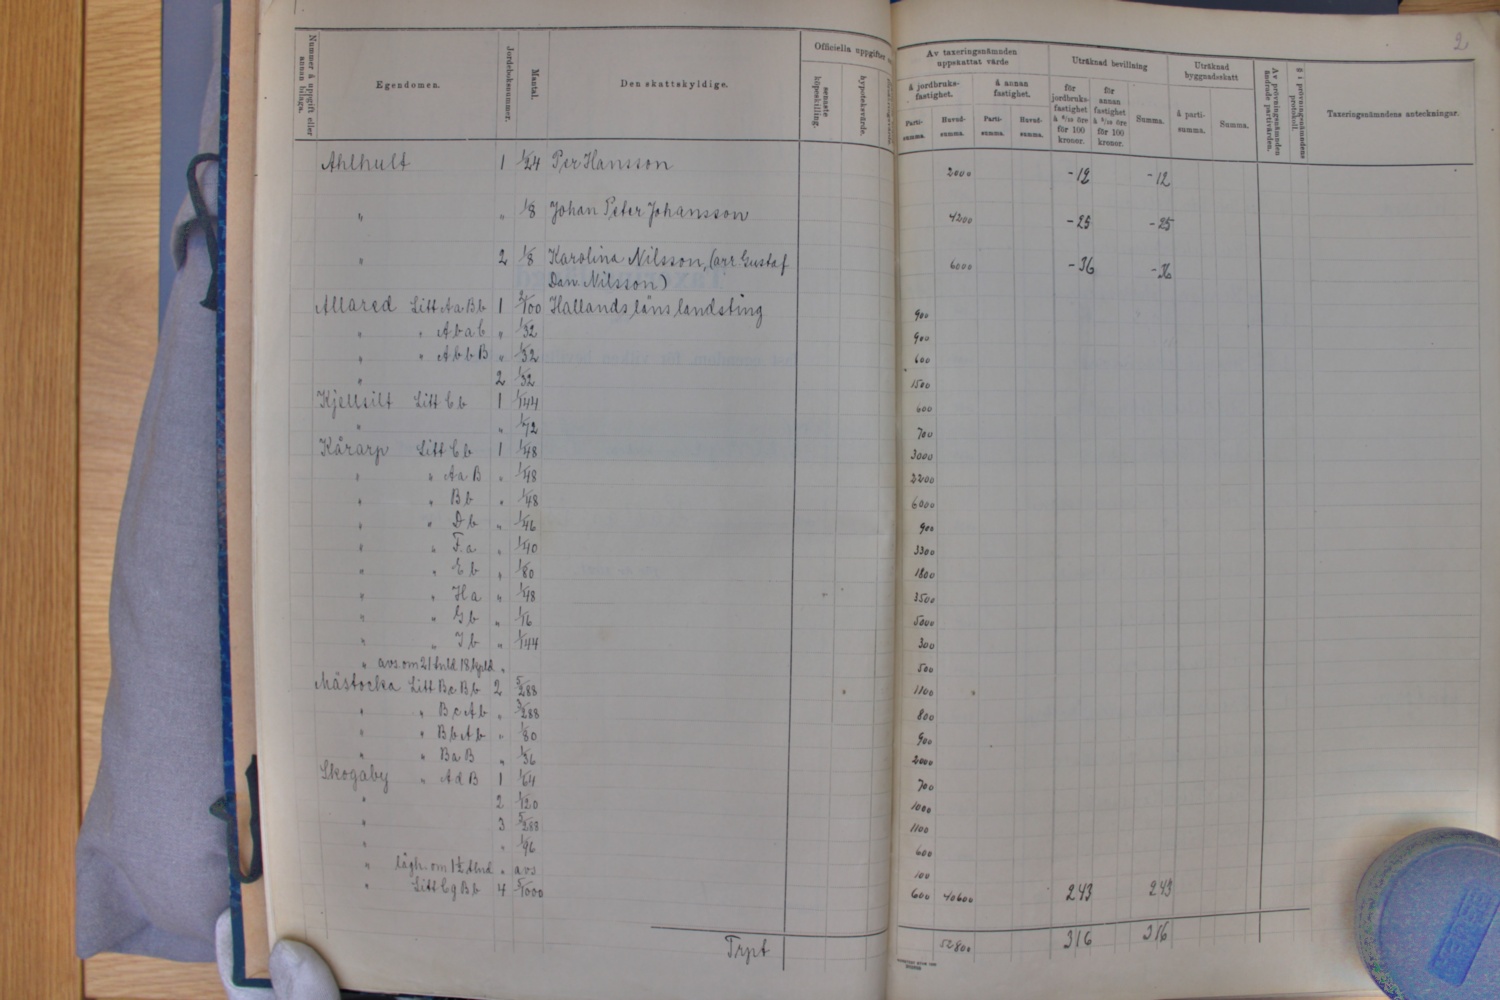 2
Nummer å uppgift eller annan bilaga.
Egendomen.
Jordeboksnummer.
Mantal.
Den skattskyldige.
Officiella uppgifter
senaste köpeskilling.
hypoteksvärde.
Av taxeringsnämnden uppskattat värde
å jordbruks-fastighet.
Parti-summa.
Huvud-summa.
å annan fastighet.
Parti-summa.
Huvud-summa.
Uträknad bevillning
för jordbruks-fastighet à 6/10 öre för 100 kronor.
för annan fastighet à 5/10 öre för 100 kronor.
Summa.
Uträknad byggnadsskatt
à parti-summa.
Summa.
Av prövningsnämnden ändrade partivärden.
§ i prövningsnämndens protokoll.
Taxeringsnämndens anteckningar.
Ahlhult 1 1/24 Per Hansson 2000 -12 -12
" " 1/8 Johan Peter Johansson 4200 -25 -25
" 2 1/8 Karolina Nilsson, (arr Gustaf 6000 -36 -36
Dan. Nilsson)
Allared Litt Aa Bb 1 /100 Hallands läns landsting 900
" " Abab " 1/32 900
" " AbbB " 1/32 600
" 2 1/32 1500
Kjellsilt Litt Cb 1 1/144 600
" " /12 700
Kårarp Litt Cb 1 1/48 3000
" " AaB " 1/48 2200
" " Bb " 1/48 6000
" " Db " 1/46 900
" " Fa " 1/40 3300
" " Eb " 1/80 1800
" " Ha " 1/48 3500
" " Gb " 1/16 5000
" " Ib " 1/144 300
" avs. om 21 tnld 18 kpld " 500
Mästocka Litt Ba Bb 2 5/288 1100
" " BcAb " 3/288 800
" " BbAb " 1/80 900
" " BaB " 1/36 2000
Skogaby " AdB 1 1/64 700
" 2 1/120 1000
" 3 5/288 1100
" " 1/96 600
" lägh. om 1 1/2 tnld " avs 100
" Litt CgBb 4 5/1000 600 40600 243 243
Trpt 52800 316 316